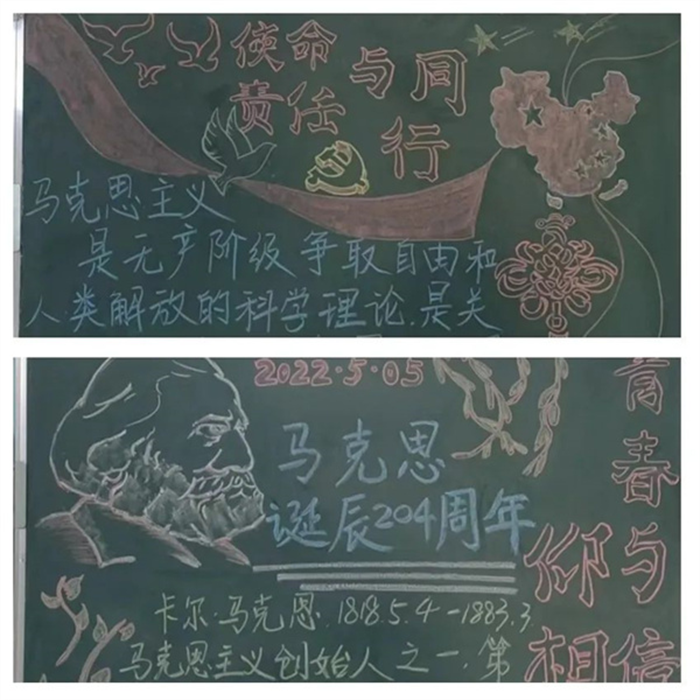 使命 与同
责任 行
马克思主义
是无产阶级争取自由和
人类解放的科学理论.是关
2022·5·05
马克思
诞辰204周年
卡尔·马克思.1818.5.4-1883.3
马克思主义创始人之一.第
青春与
仰 相信